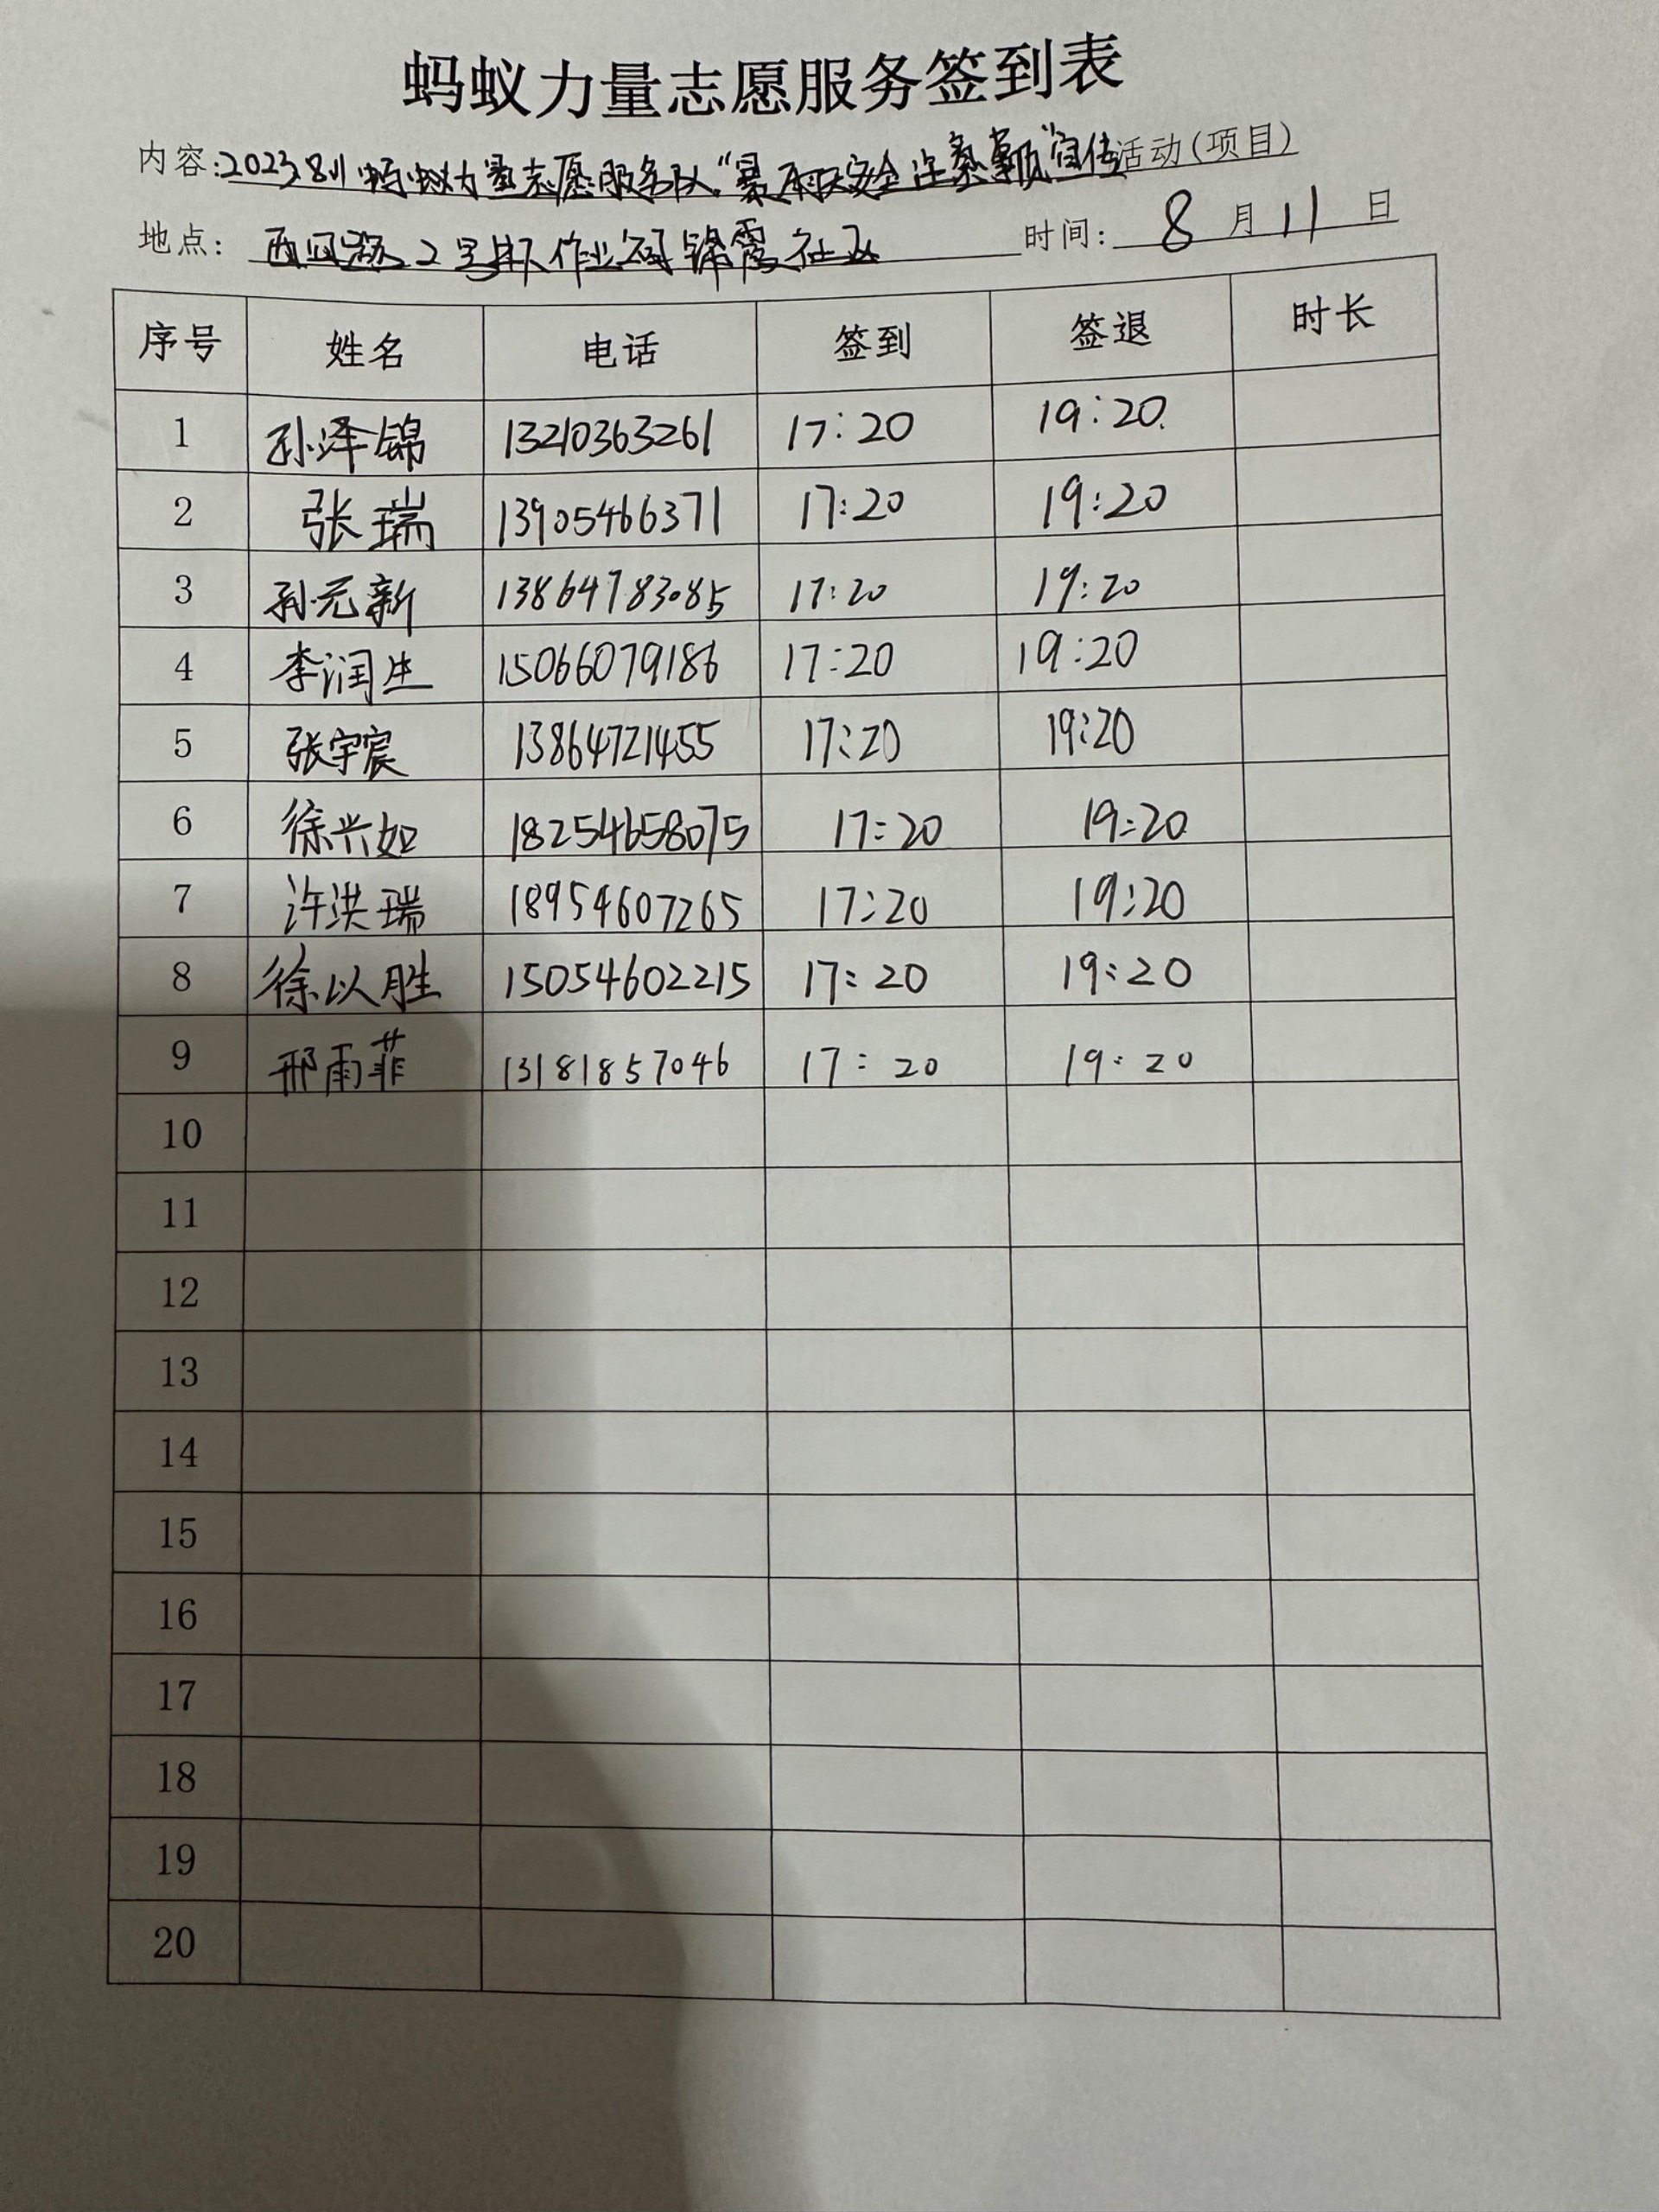 蚂蚁力量志愿服务签到表
内容:2023.8.11 蚂蚁力量志愿服务队“暴雨天安全注意事项”宣传活动(项目)
地点: 2号 作业 锦霞社区 时间: 8月11日
序号 姓名 电话 签到 签退 时长
1 孙泽锦 13210363261 17:20 19:20
2 张瑞 13905466371 17:20 19:20
3 孙元新 13864783085 17:20 19:20
4 李润生 15066079186 17:20 19:20
5 张宇宸 13864721455 17:20 19:20
6 徐兴如 18254658075 17:20 19:20
7 许洪瑞 18954607265 17:20 19:20
8 徐以胜 15054602215 17:20 19:20
9 邢雨菲 13181857046 17:20 19:20
10
11
12
13
14
15
16
17
18
19
20